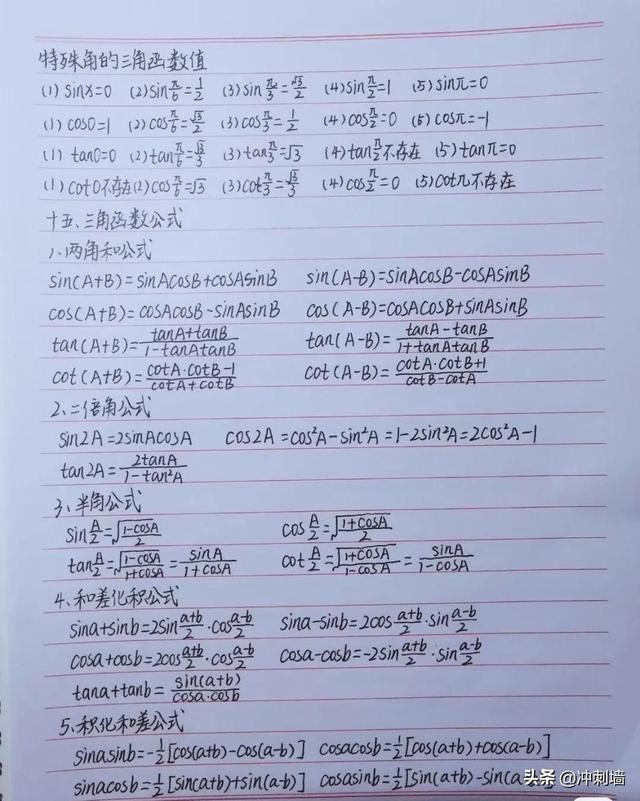 特殊角的三角函数值
(1) sinx=0 (2)sin π/6=1/2 (3)sin π/3=√3/2 (4)sin π/2=1 (5)sinπ=0
(1) cos0=1 (2)cos π/6=√3/2 (3)cos π/3=1/2 (4)cos π/2=0 (5)cosπ=-1
(1) tan0=0 (2)tan π/6=√3/3 (3)tan π/3=√3 (4)tan π/2不存在 (5)tanπ=0
(1)cot0不存在(2)cos π/6=√3 (3)cot π/3=√3/3 (4)cos π/2=0 (5)cotπ不存在
十五、三角函数公式
1、两角和公式
sin(A+B)=sinAcosB+cosAsinB sin(A-B)=sinAcosB-cosAsinB
cos(A+B)=cosAcosB-sinAsinB cos(A-B)=cosAcosB+sinAsinB
tan(A+B)=(tanA+tanB)/(1-tanAtanB) tan(A-B)=(tanA-tanB)/(1+tanAtanB)
cot(A+B)=(cotA·cotB-1)/(cotA+cotB) cot(A-B)=(cotA·cotB+1)/(cotB-cotA)
2、二倍角公式
sin2A=2sinAcosA cos2A=cos²A-sin²A=1-2sin²A=2cos²A-1
tan2A=2tanA/(1-tan²A)
3、半角公式
sin A/2=√((1-cosA)/2) cos A/2=√((1+cosA)/2)
tan A/2=√((1-cosA)/(1+cosA))=sinA/(1+cosA) cot A/2=√((1+cosA)/(1-cosA))=sinA/(1-cosA)
4、和差化积公式
sina+sinb=2sin (a+b)/2·cos (a-b)/2 sina-sinb=2cos (a+b)/2·sin (a-b)/2
cosa+cosb=2cos (a+b)/2·cos (a-b)/2 cosa-cosb=-2sin (a+b)/2·sin (a-b)/2
tana+tanb=sin(a+b)/(cosa·cosb)
5、积化和差公式
sinasinb=-1/2[cos(a+b)-cos(a-b)] cosacosb=1/2[cos(a+b)+cos(a-b)]
sinacosb=1/2[sin(a+b)+sin(a-b)] cosasinb=1/2[sin(a+b)-sin(a
头条 @冲刺墙